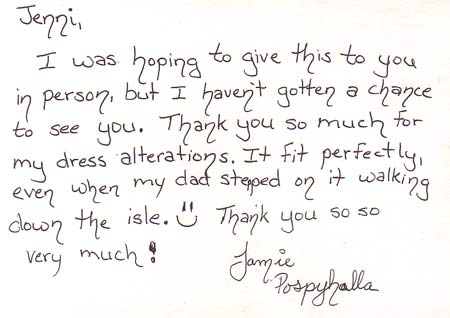 Jenni,
I was hoping to give this to you
in person, but I haven't gotten a chance
to see you. Thank you so much for
my dress alterations. It fit perfectly,
even when my dad stepped on it walking
down the isle. Thank you so so
very much!
Jamie
Pospyhalla